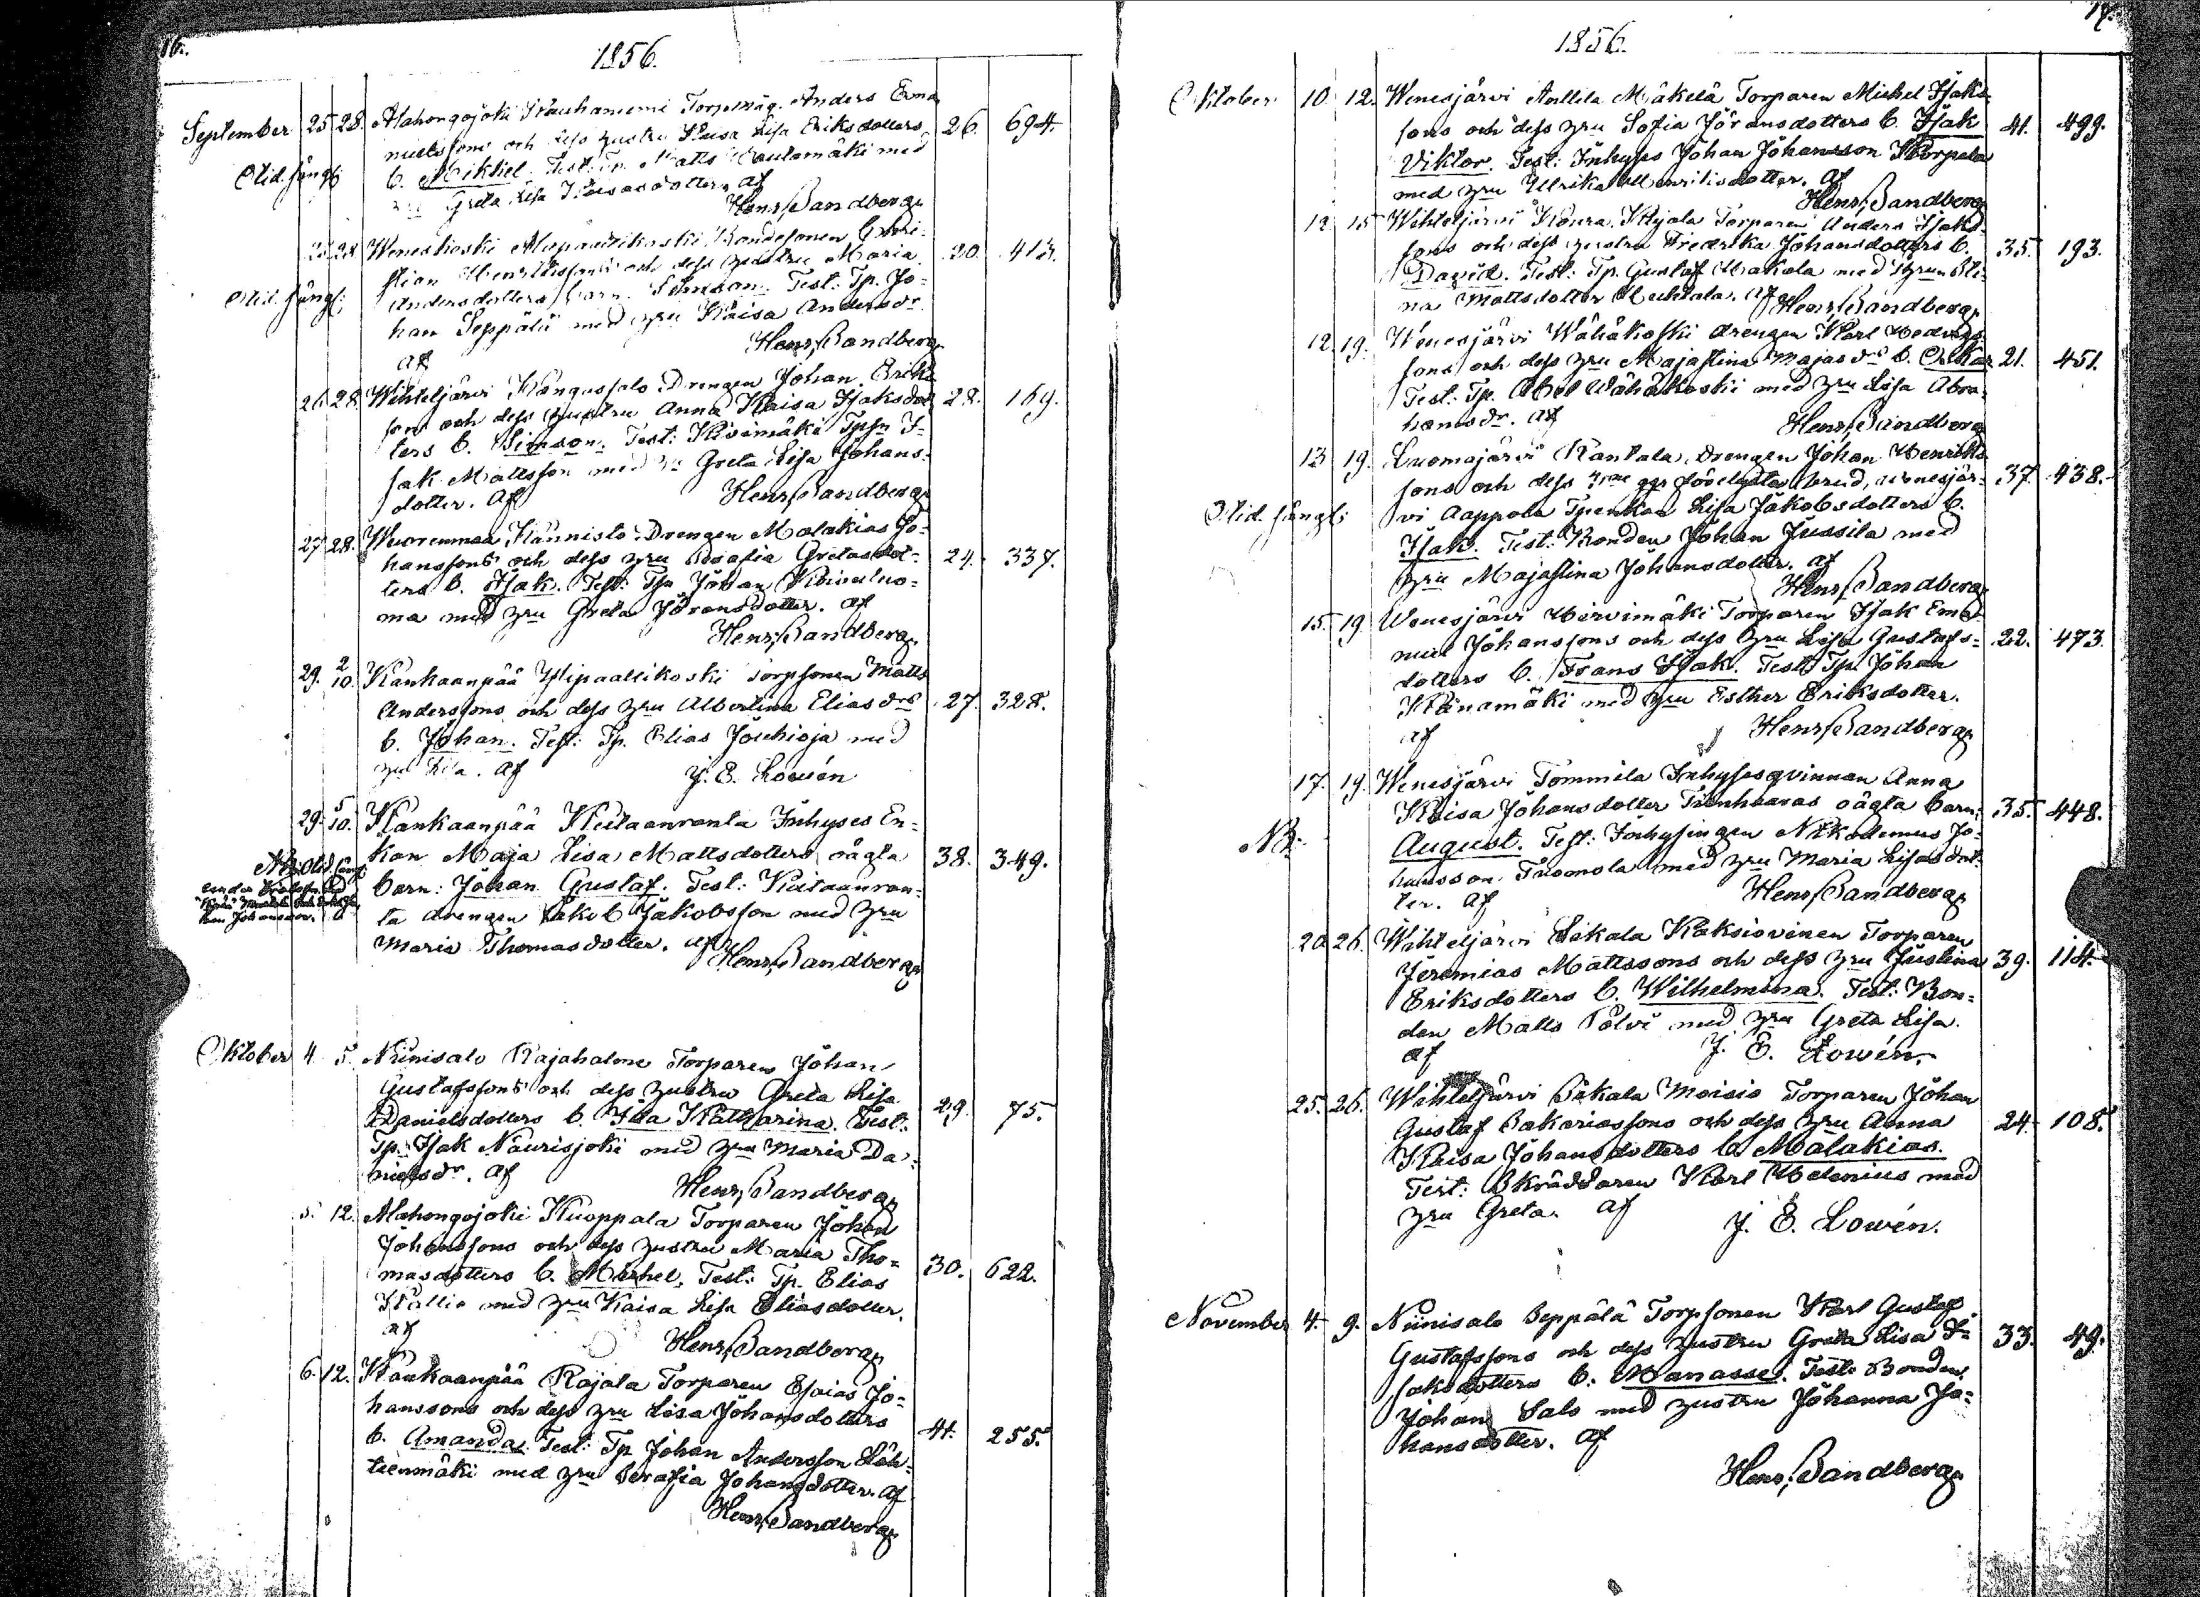 16.
1856.
September 25 28. Alahongojoki Rauhaniemi Torpmåg. Anders Ema 26. 694.
nuelssons och dess hustru Kaisa Lisa Eriksdotters
Otid. sängl. b. Mikkel. Test: Tp. Matts Rautamäki med
hru Greta Lisa Kaisasdotter. af
Henr. Sandberg
25 28 Weneskoski Alapaadikoski Bondesonen Chri= 20. 413.
stian Henrikssons och dess hustru Maria
Otid. sängl: Andersdotters barn Simson. Test: Tp. Jo=
han Seppälä med hru Kaisa Andersdr
af Henr. Sandberg
26. 28. Wihteljärvi Kangassalo Drengen Johan Eriks 28. 169.
sons och dess hustru Anna Kaisa Isaksdot
ters b. Simson. Test: Kivimäki Tpsn I=
sak Mattsson med hru Greta Lisa Johans=
dotter. af Henr. Sandberg
27 28. Wuorenmaa Hannisto Drengen Malakias Jo=
hanssons och dess hru Serafia Gretasdot= 24. 337.
ters b. Isak. Test: Tp. Johan Kiviluo=
ma med hru Greta Göransdotter. af
Henr. Sandberg
29. 2/10. Kankaanpää Ylipaallikoski Torpsonen Matts
Anderssons och dess hru Albertina Eliasdrs 27. 328.
b. Johan. Test: Tp. Elias Jouhioja med
hru Lisa. af J. E. Lowén
29. 5/10. Kankaanpää Kuitaanranta Inhyses En=
kan Maja Lisa Mattsdotters oägta 38. 349.
NB. Otid. sängl.
barn: Johan Gustaf. Test: Kuitaanran=
ta drengen Jakob Jakobsson med hru
Maria Thomasdotter. af Henr. Sandberg
Oktober 4. 5. Niinisalo Rajahalme Torparen Johan
Gustafssons och dess hustru Greta Lisa
Danielsdotters b. Ida Katharina. Test: 29. 75.
Tp. Isak Naurisjoki med hru Maria Da=
nielsdr. af Henr. Sandberg
5. 12. Alahongojoki Kuoppala Torparen Johan
Johanssons och dess hustru Maria Tho=
masdotters b. Michel. Test: Tp. Elias 30. 622.
Kallio med hru Kaisa Lisa Eliasdotter.
af Henr. Sandberg
6. 12. Kankaanpää Rajala Torparen Esaias Jo=
hanssons och dess hru Lisa Johansdotters
b. Amanda. Test: Tp Johan Andersson Läh= 41. 255.
teenmäki med hru Serafia Johansdotter. af
Henr. Sandberg
17.
1856.
Oktober 10. 12. Wenesjärvi Anttila Mäkelä Torparen Michel Isaks
sons och dess hru Sofia Göransdotters b. Isak 41. 499.
Viktor. Test: Inhyses Johan Johansson Korpela
med hru Ullrika Henriksdotter. af
Henr. Sandberg
12 15 Wihteljärvi Koura Kujala Torparen Anders Isaks
sons och dess hustru Fredrika Johansdotters b. 35. 193.
David. Test: Tp. Gustaf Makala med hrun Sti=
na Mattsdotter Huhtala. af Henr. Sandberg
12. 19. Wenesjärvi Wähäkoski drengen Karl Hedvigs
sons och dess hru Majastina Majasdrs b. Oskar 21. 451.
Test: Tp. Abel Wähäkoski med hru Lisa Abra
hamsdr. af Henr. Sandberg
13 19. Luomajärvi Rantala Drengen Johan Henriks
sons och dess 3ne ggr förelysta brud, Wenesjär= 37. 438.
Otid. sängl: vi Aappola Tpenkan Lisa Jakobsdotters b.
Isak. Test: Bonden Johan Jussila med
hru Majastina Johansdotter. af
Henr. Sandberg
15. 19. Wenesjärvi Hirvimäki Torparen Isak Ema
nuel Johanssons och dess hru Lisa Gustafs= 22. 473.
dotters b. Frans Isak. Test: Tp. Johan
Känamäki med hru Esther Eriksdotter.
af Henr. Sandberg
17. 19. Wenesjärvi Tommila Inhysesqvinnan Anna
Kaisa Johansdotter Tienhaaras oägta barn: 35. 448.
NB. August. Test: Inhysingen Nikodemus Jo=
hansson Tuomola med hru Maria Lisasdot=
ter. af Henr. Sandberg
20. 26. Wihteljärvi Sikala Kaksiovinen Torparen
Jeremias Mattssons och dess hru Justina 39. 114.
Eriksdotters b. Wilhelmina. Test: Bon=
den Matts Polvi med hru Greta Lisa.
af J. E. Lowén.
25. 26. Wihteljärvi Sikala Moisio Torparen Johan
Gustaf Sakariassons och dess hru Anna 24. 108.
Kaisa Johansdotters b. Malakias.
Test: Skräddaren Karl Helenius med
hru Greta. af J. E. Lowén.
November 4. 9. Niinisalo Seppälä Torpsonen Karl Gustaf
Gustafssons och dess hustru Greta Lisa I= 33. 49.
saksdotters b. Manasse. Test: Bonden
Johan Salo med hustru Johanna Jo=
hansdotter. af
Henr. Sandberg